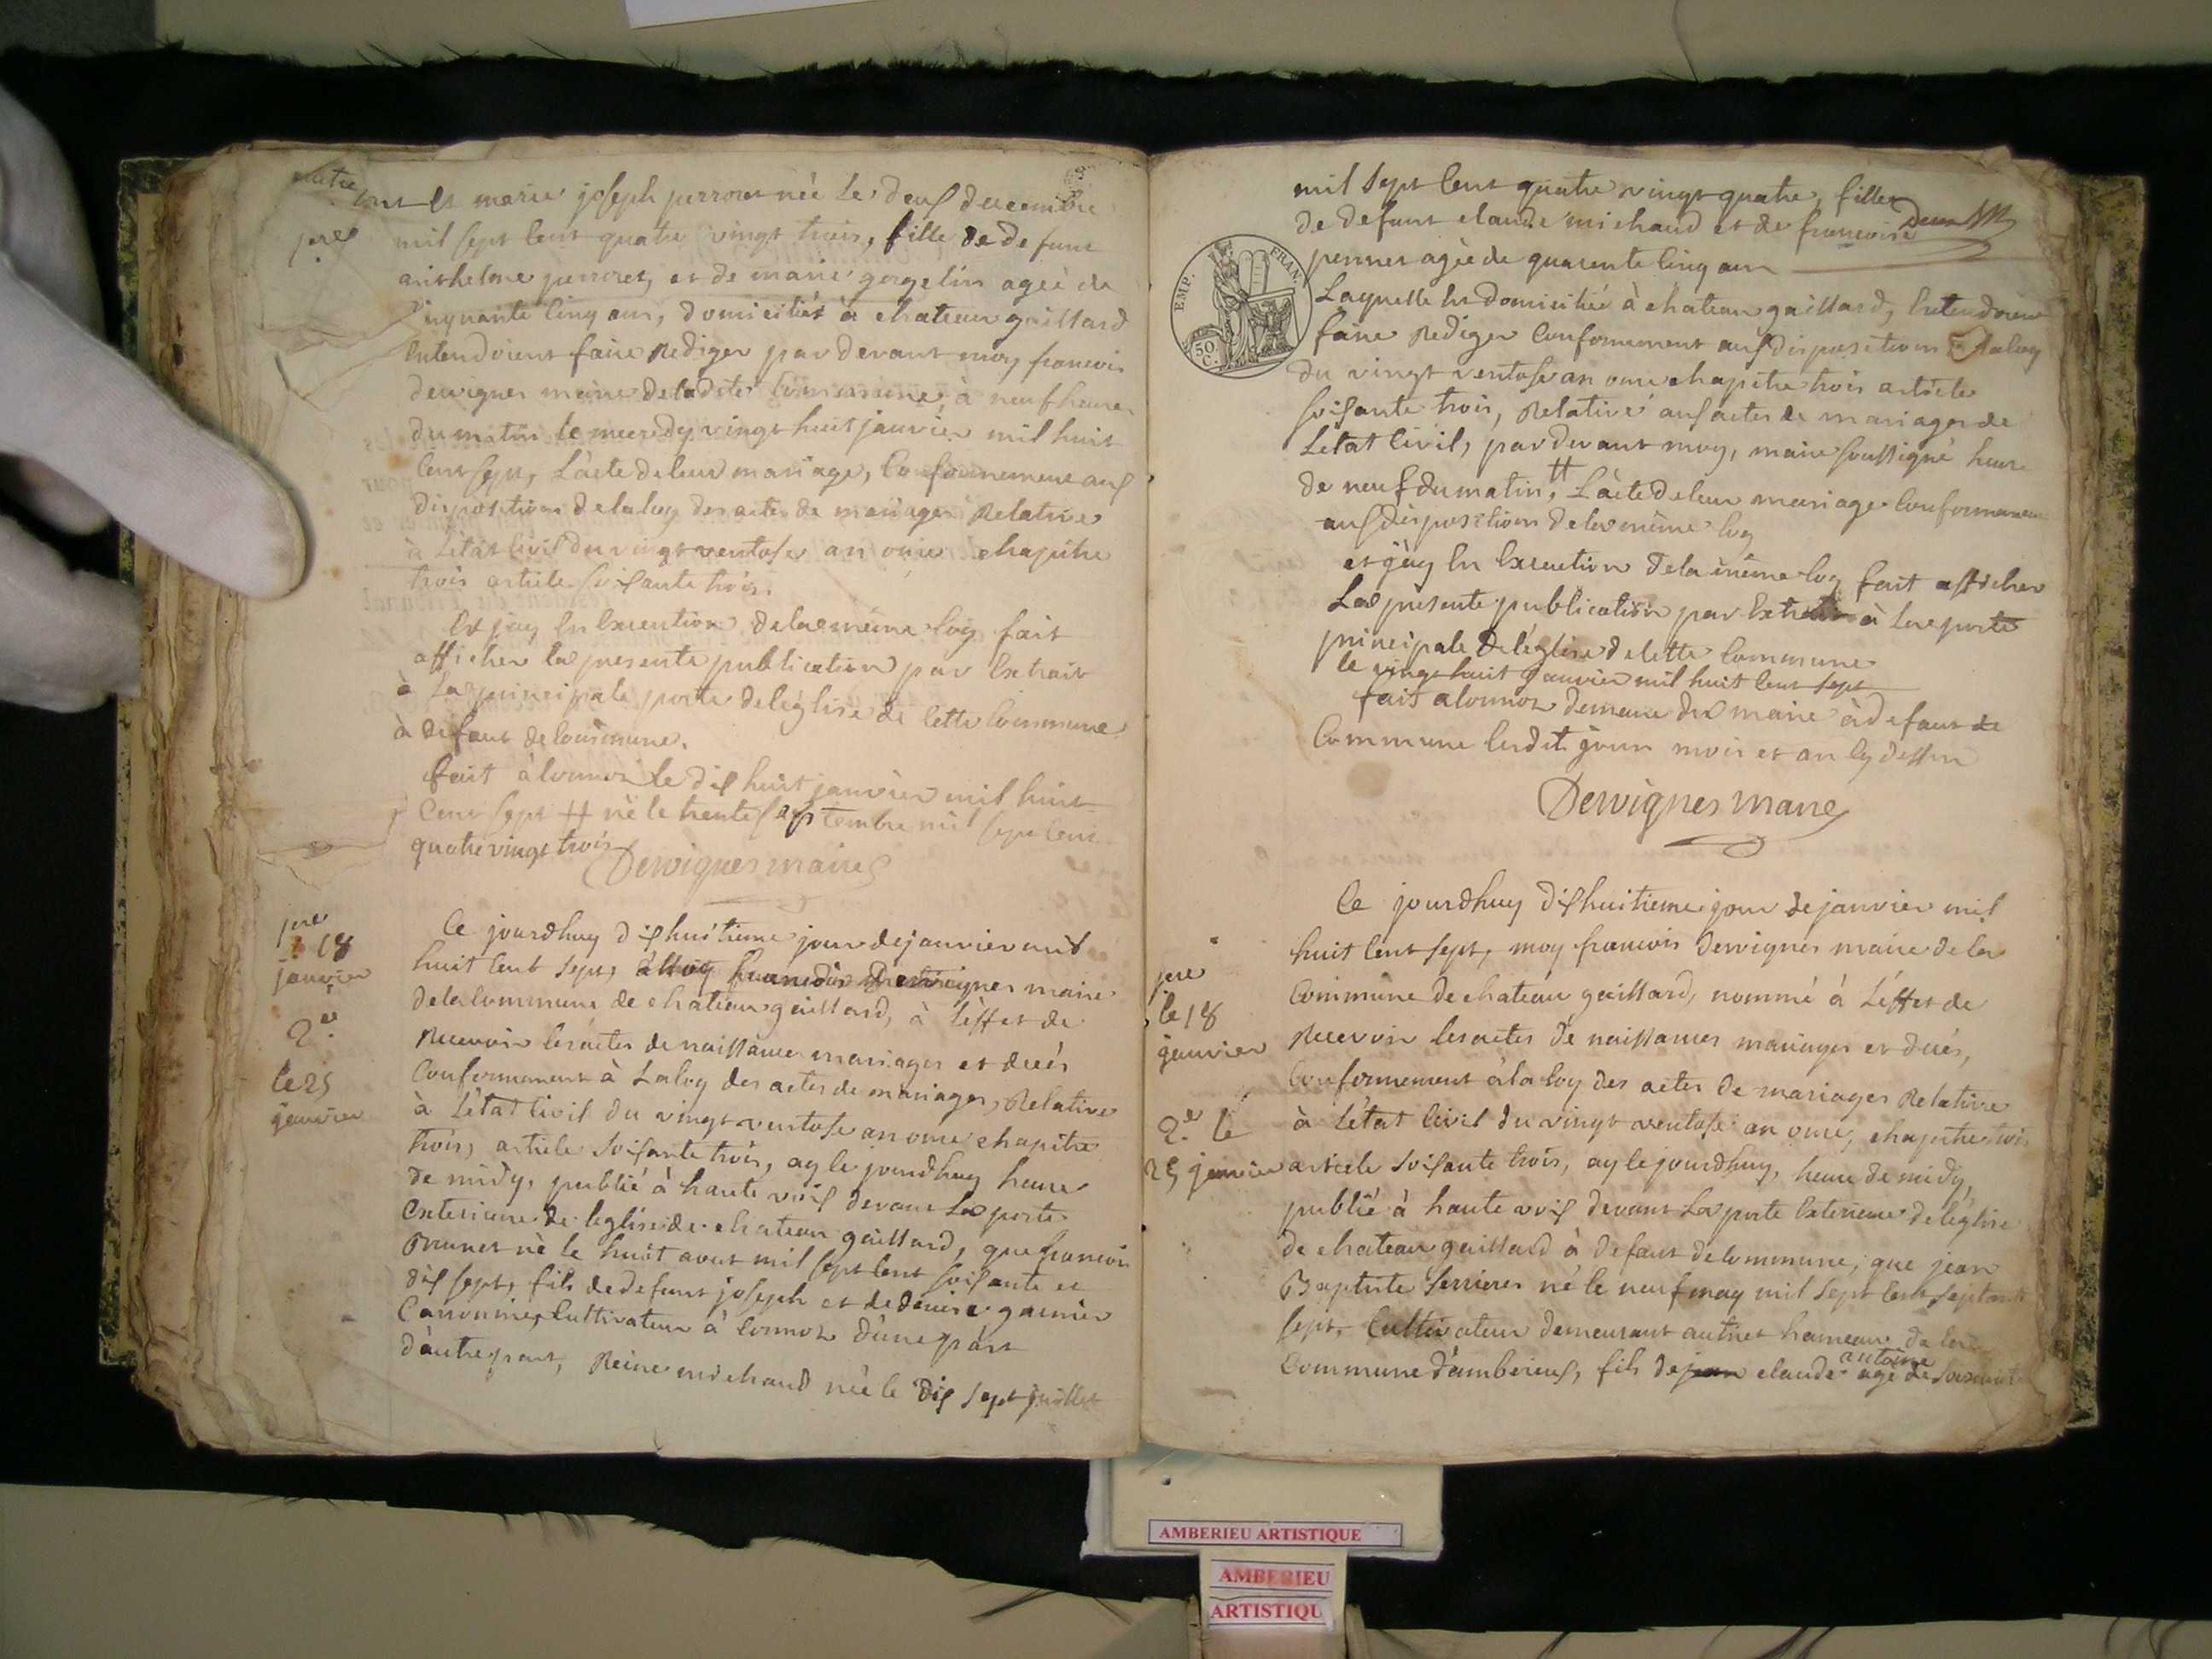 autre
part et marie joseph perroux née le deux decembre
pres mil sept cent quatre vingt trois, fille de defunt
anthelme perroux, et de marie gergelin agée de
cinquante cinq ans, domiciliés à chateau gaillard
entendoient faire rediger par devant moy francois
dervignes maire deladite commune, à neuf heures
du matin le mecredy vingt huit janvier mil huit
cent sept, l'acte deleur mariage, conformement aux
dispositions delaloy des actes de mariages Relative
à l'état civil du vingt ventose an onze chapitre
trois article soixante trois.
Et jay en Execution delamême loy fait
afficher la presente publication par Extrait
à la principale porte deléglise de cette commune
à defaut decommune.
fait à cormoz le dix huit janvier mil huit
cent sept # né le trente septembre mil sept cent
quatrevingt trois
Dervignes maire
pre
18
janvier
2e
le 25
janvier
Ce jourdhuy dixhuitieme jour dejanvier mil
huit cent sept, moy francois Dervignes maire
delacommune de chateau gaillard, à l'effet de
Recevoir lesactes de naissances mariages et decés
conformement à Laloy des actes de mariages, Relative
à l'état civil du vingt ventose an onze chapitre
trois, article soixante trois, ay le jourdhuy heure
de midy, publié à haute voix devant La porte
Exterieure de leglise de chateau gaillard, que francois
Brunet né le huit aout mil sept cent soixante et
dix sept, fils dedefunt joseph et de denise garnier
Cultivateur à cormoz d'une part
d'autre part, Reine michaud née le dix sept juillet
mil sept cent quatre vingt quatre, fille
de defunt claude michaud et de francoise
pernet agée de quarente cinq ans
EMP. FRAN.
50 C.
Laquelle est domiciliée à chateau gaillard, Entendoient
faire Rediger conformement aux dispositions delaloy
du vingt ventose an onze chapitre trois article
soixante trois, Relative aux actes de mariages de
Letat civil, par devant moy, maire soussigné heure
de neuf du matin, # L'acte deleur mariage conformement
aux dispositions delamême loy
et j'ay en Execution dela même loy fait afficher
La presente publication par Extrait à la porte
principale deléglise decette commune
le vingt huit janvier mil huit cent sept
fait a cormoz demeure du maire à defaut de
commune lesdit jour mois et an cy dessus
Dervignes maire
pre
le 18
janvier
2e le
25 janvier
Ce jourdhuy dixhuitieme jour de janvier mil
huit cent sept, moy francois Dervignes maire de la
commune de chateau gaillard, nommé à l'effet de
Recevoir lesactes de naissances mariages et decés,
Conformement à la loy des actes de mariages Relative
à l'état civil du vingt ventose an onze, chapitre trois
article soixante trois, ay le jourdhuy, heure de midy,
publié à haute voix devant La porte Exterieure deléglise
de chateau gaillard à defaut decommune, que jean
Baptiste serrieres né le neuf may mil sept cent septante
sept, Cultivateur demeurant au tiret hameau de la
commune d'amberieux, fils de jean claude antoine agé de soixante
AMBERIEU ARTISTIQUE
AMBERIEU
ARTISTIQU